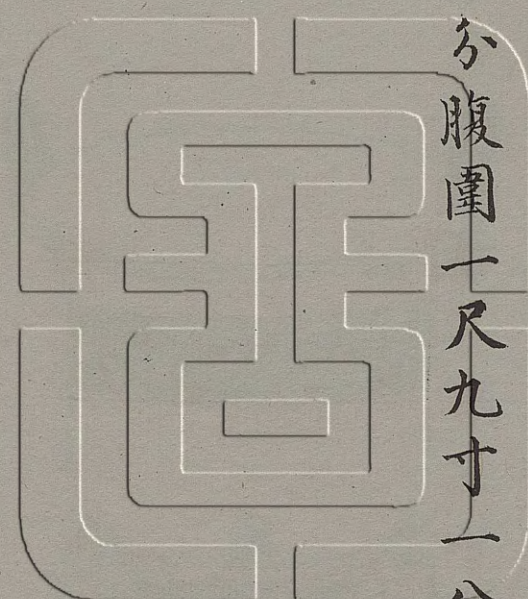 分腹圍一尺九寸一分